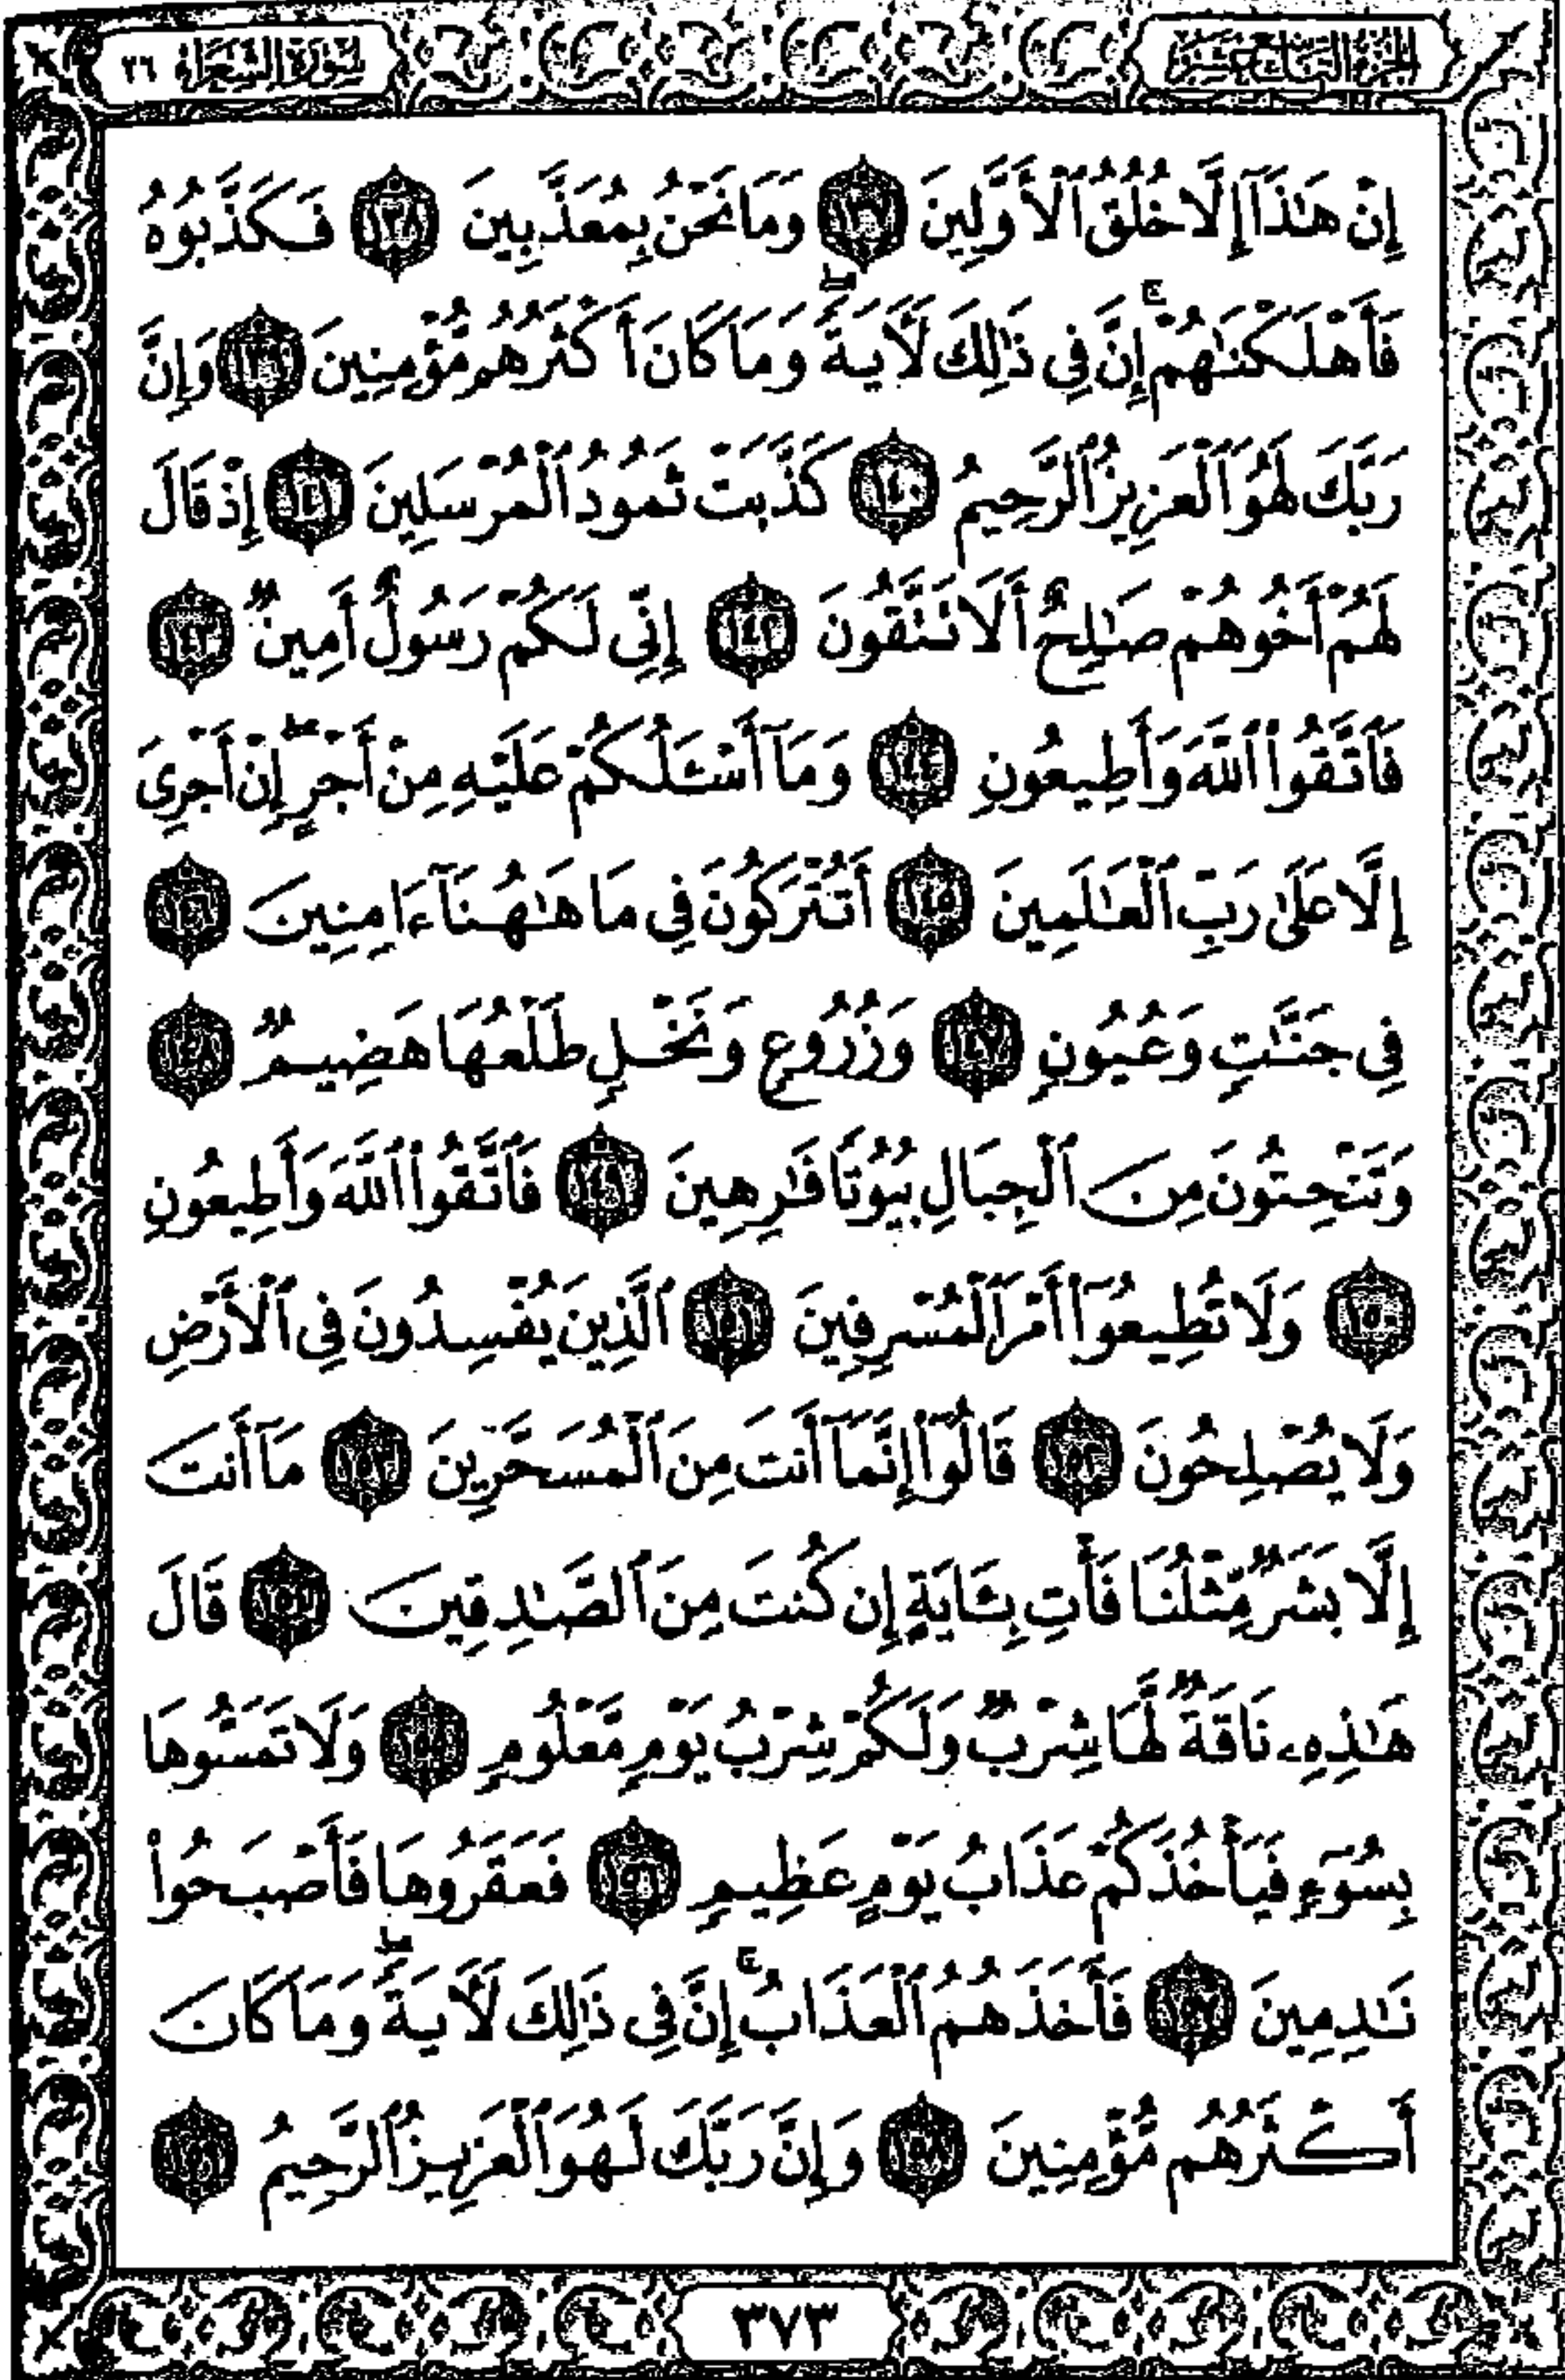 الجزء التاسع عشر
سورة الشعراء ٢٦
إِنْ هَـٰذَآ إِلَّا خُلُقُ ٱلْأَوَّلِينَ ١٣٧ وَمَا نَحْنُ بِمُعَذَّبِينَ ١٣٨ فَكَذَّبُوهُ
فَأَهْلَكْنَـٰهُمْ ۗ إِنَّ فِى ذَٰلِكَ لَـَٔايَةً ۖ وَمَا كَانَ أَكْثَرُهُم مُّؤْمِنِينَ ١٣٩ وَإِنَّ
رَبَّكَ لَهُوَ ٱلْعَزِيزُ ٱلرَّحِيمُ ١٤٠ كَذَّبَتْ ثَمُودُ ٱلْمُرْسَلِينَ ١٤١ إِذْ قَالَ
لَهُمْ أَخُوهُمْ صَـٰلِحٌ أَلَا تَتَّقُونَ ١٤٢ إِنِّى لَكُمْ رَسُولٌ أَمِينٌ ١٤٣
فَٱتَّقُوا۟ ٱللَّهَ وَأَطِيعُونِ ١٤٤ وَمَآ أَسْـَٔلُكُمْ عَلَيْهِ مِنْ أَجْرٍ ۖ إِنْ أَجْرِىَ
إِلَّا عَلَىٰ رَبِّ ٱلْعَـٰلَمِينَ ١٤٥ أَتُتْرَكُونَ فِى مَا هَـٰهُنَآ ءَامِنِينَ ١٤٦
فِى جَنَّـٰتٍ وَعُيُونٍ ١٤٧ وَزُرُوعٍ وَنَخْلٍ طَلْعُهَا هَضِيمٌ ١٤٨
وَتَنْحِتُونَ مِنَ ٱلْجِبَالِ بُيُوتًا فَـٰرِهِينَ ١٤٩ فَٱتَّقُوا۟ ٱللَّهَ وَأَطِيعُونِ
١٥٠ وَلَا تُطِيعُوٓا۟ أَمْرَ ٱلْمُسْرِفِينَ ١٥١ ٱلَّذِينَ يُفْسِدُونَ فِى ٱلْأَرْضِ
وَلَا يُصْلِحُونَ ١٥٢ قَالُوٓا۟ إِنَّمَآ أَنتَ مِنَ ٱلْمُسَحَّرِينَ ١٥٣ مَآ أَنتَ
إِلَّا بَشَرٌ مِّثْلُنَا فَأْتِ بِـَٔايَةٍ إِن كُنتَ مِنَ ٱلصَّـٰدِقِينَ ١٥٤ قَالَ
هَـٰذِهِۦ نَاقَةٌ لَّهَا شِرْبٌ وَلَكُمْ شِرْبُ يَوْمٍ مَّعْلُومٍ ١٥٥ وَلَا تَمَسُّوهَا
بِسُوٓءٍ فَيَأْخُذَكُمْ عَذَابُ يَوْمٍ عَظِيمٍ ١٥٦ فَعَقَرُوهَا فَأَصْبَحُوا۟
نَـٰدِمِينَ ١٥٧ فَأَخَذَهُمُ ٱلْعَذَابُ ۗ إِنَّ فِى ذَٰلِكَ لَـَٔايَةً ۖ وَمَا كَانَ
أَكْثَرُهُم مُّؤْمِنِينَ ١٥٨ وَإِنَّ رَبَّكَ لَهُوَ ٱلْعَزِيزُ ٱلرَّحِيمُ ١٥٩
٣٧٣